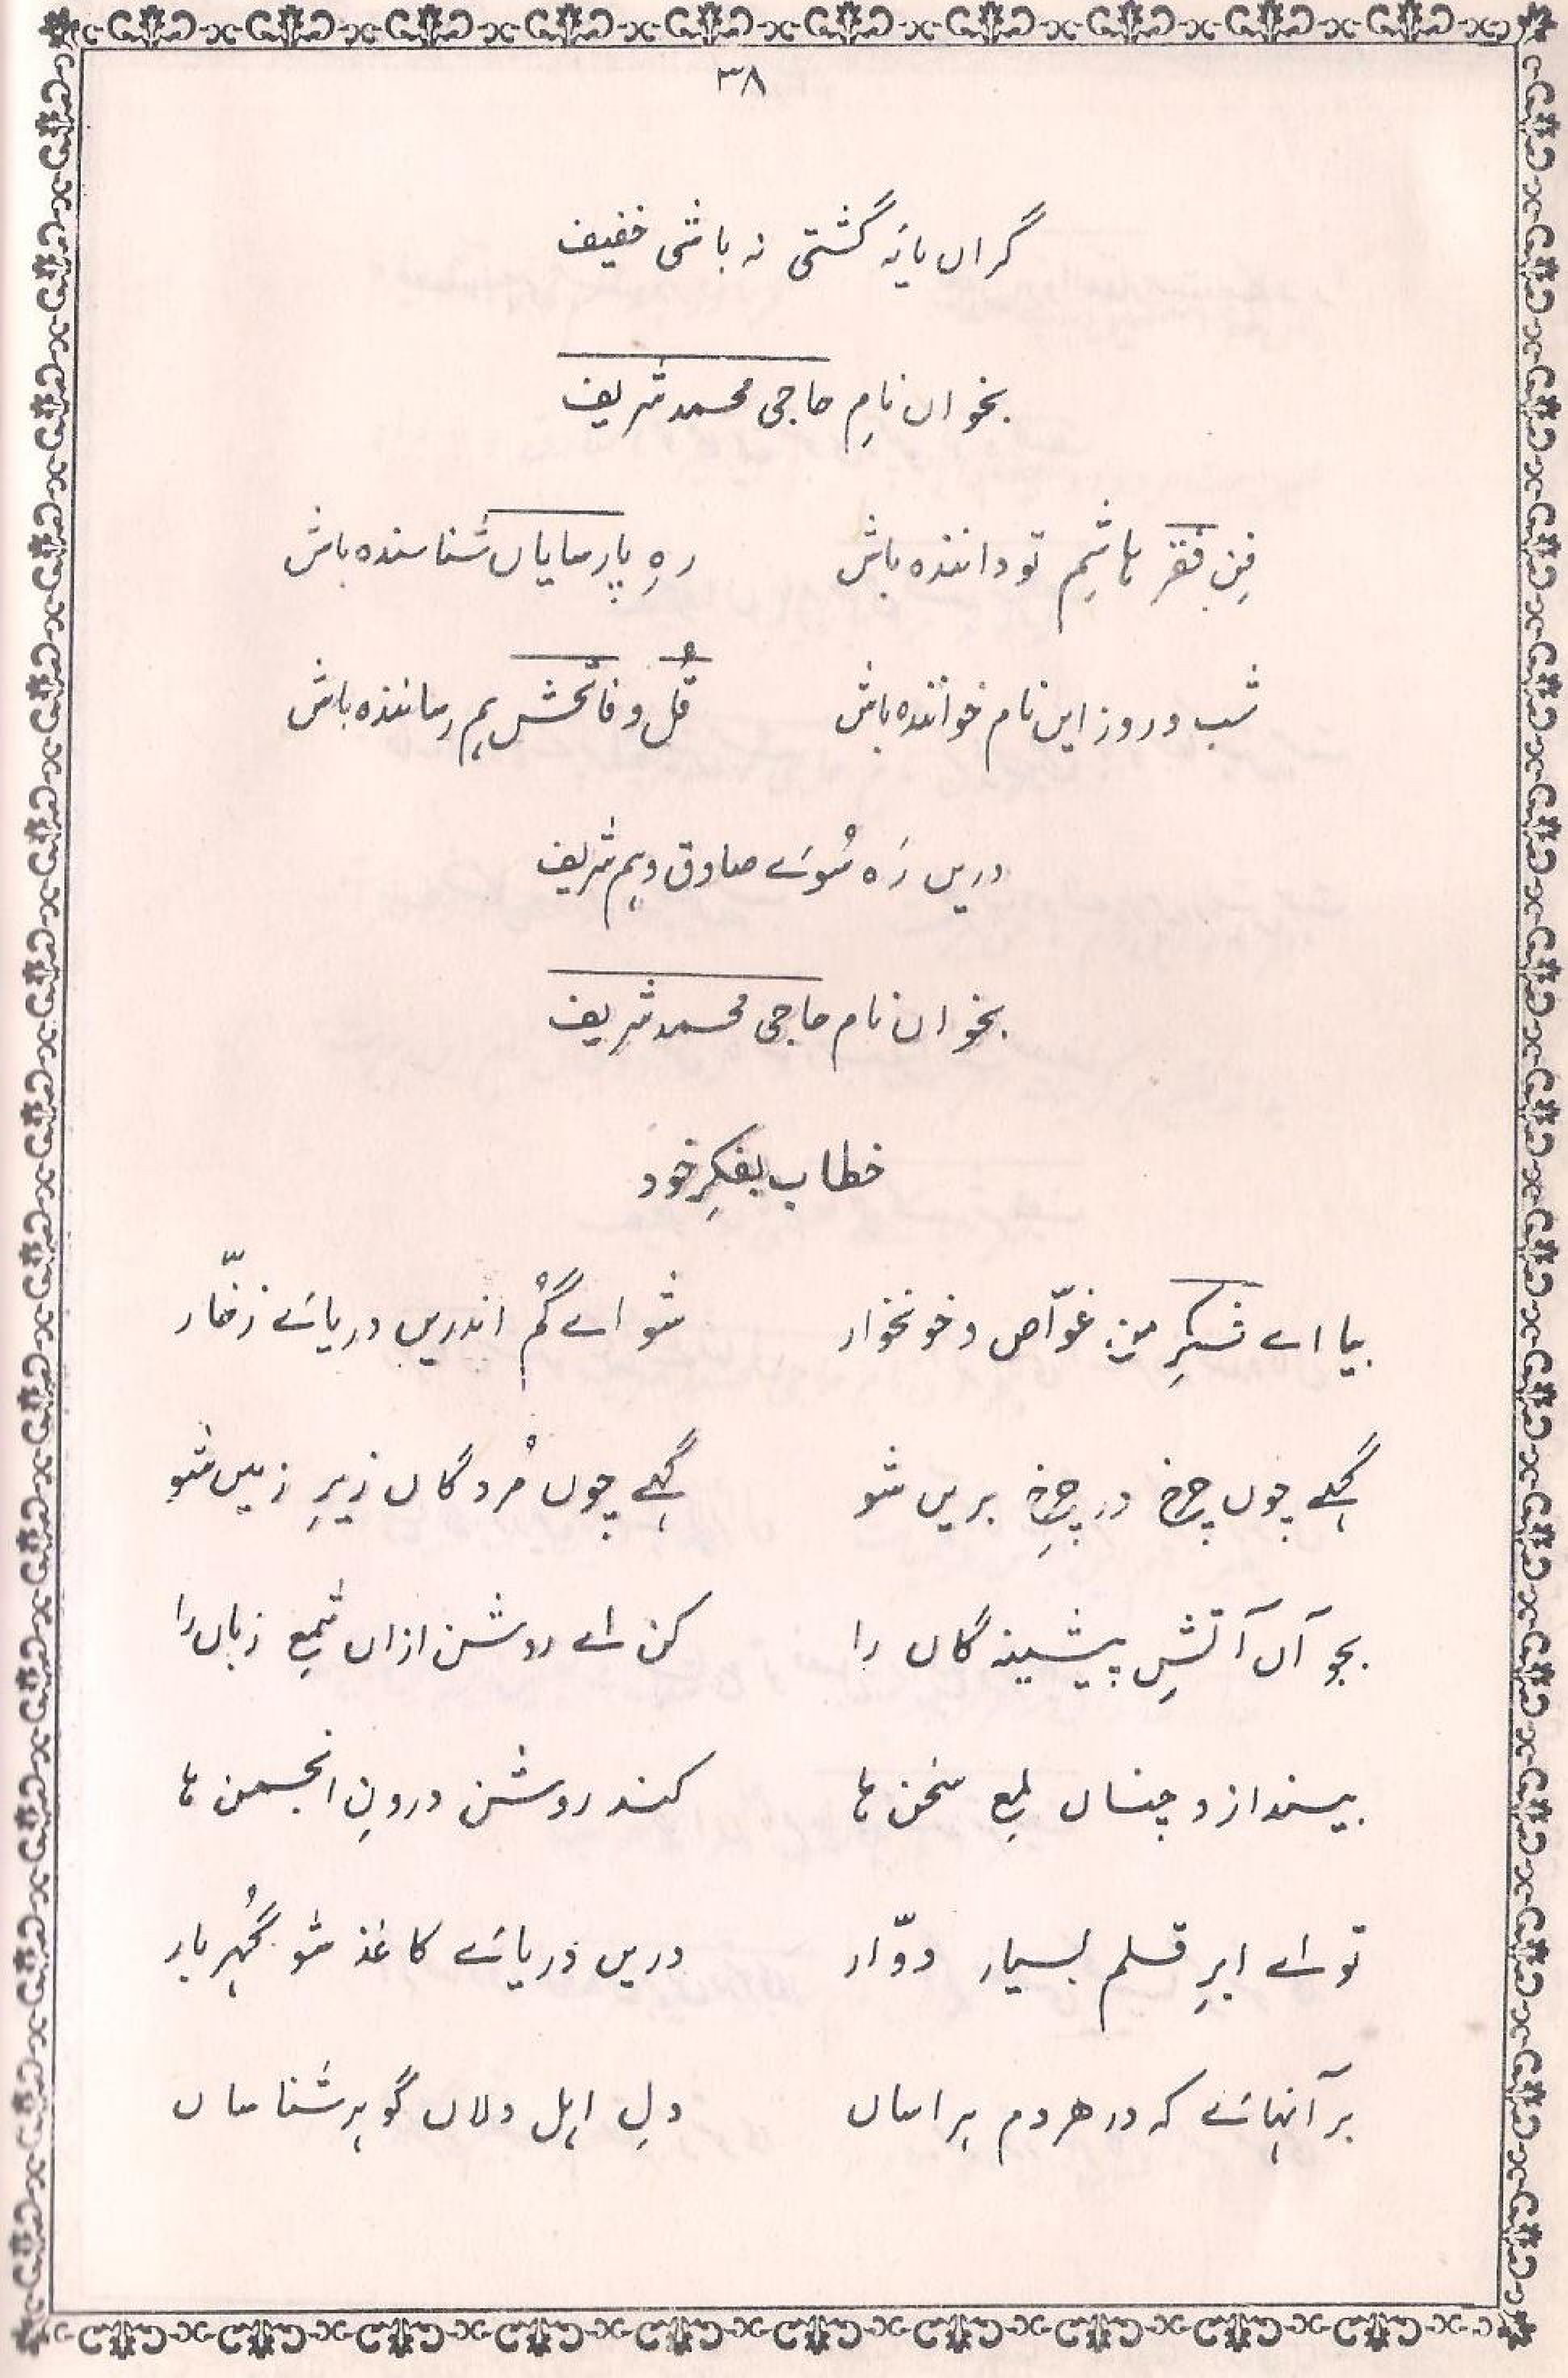 ۳۸
گراں پایَہ گشتی نہ باشی خفیف
بخواں نامِ حاجی محمد شریف
فنِ فقر ہاشم تو دانندہ باش رہِ پارسایاں شناسندہ باش
شب و روز ایں نام خوانندہ باش قُل و فاتحش ہم رسانندہ باش
دریں رَہ شُوئے صادق وہم شریف
بخواں نام حاجی محمد شریف
خطاب بفکرِ خود
بیا اے فکرِ من غوّاص و خونخوار شو اے گُم اندریں دریائے زخّار
گہے چوں چرخ در چرخِ بریں شو گہے چوں مُردگاں زیرِ زمیں شو
بجو آں آتشِ پیشینہ گاں را کن اے روشن ازاں شمعِ زباں را
بیند ازو چناں لمعِ سخن ہا کند روشن درونِ انجمن ہا
تو اے ابرِ قلم بسیار دوّار دریں دریائے کاغذ شو گُہر بار
بر آنہائے کہ در ھر دم ہراساں دلِ اہل دلاں گوہر شناساں